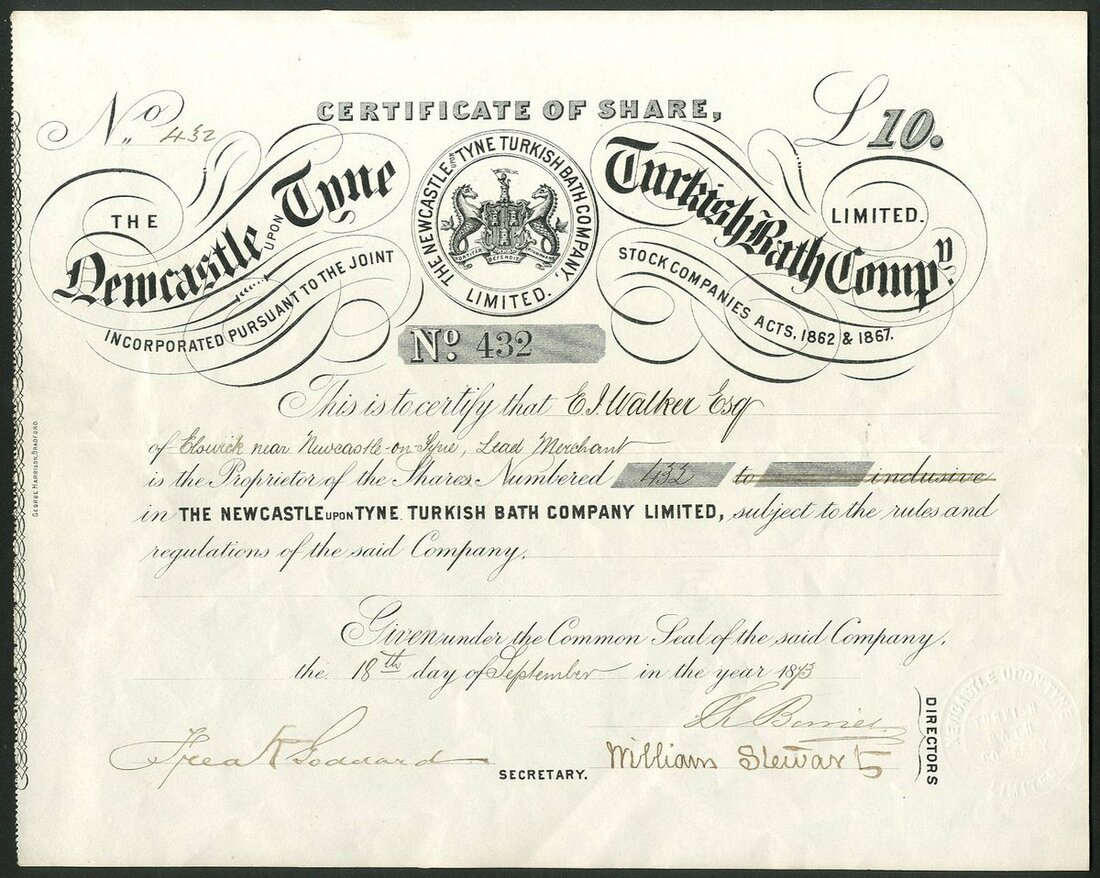 CERTIFICATE OF SHARE,
No 432
£10.
THE
Newcastle UPON Tyne
Turkish Bath Compy.
LIMITED.
INCORPORATED PURSUANT TO THE JOINT
STOCK COMPANIES ACTS, 1862 & 1867.
THE NEWCASTLE UPON TYNE TURKISH BATH COMPANY
LIMITED.
FORTITER DEFENDIT TRIUMPHANS
No. 432
This is to certify that E. J. Walker Esq
of Elswick near Newcastle-on-Tyne, Lead Merchant
is the Proprietor of the Shares Numbered 432 to inclusive
in THE NEWCASTLE UPON TYNE TURKISH BATH COMPANY LIMITED, subject to the rules and
regulations of the said Company.
Given under the Common Seal of the said Company,
the 18th day of September in the year 1873
William Stewart
DIRECTORS
Goddard
SECRETARY.
GEORGE HARRISON, BRADFORD.
NEWCASTLE UPON TYNE
TURKISH
BATH
LIMITED